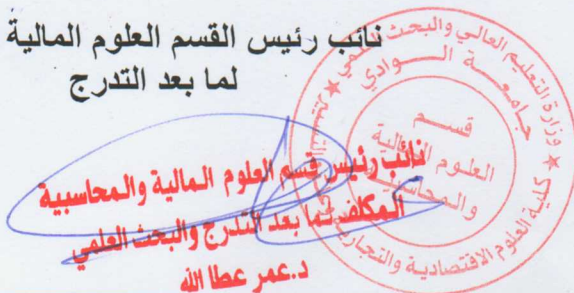 نائب رئيس القسم العلوم المالية
لما بعد التدرج
نائب رئيس قسم العلوم المالية والمحاسبية
المكلف بما بعد التدرج والبحث العلمي
د.عمر عطا الله
وزارة التعليم العالي والبحث العلمي
جامعة الوادي
كلية العلوم الاقتصادية والتجارية
قسم
العلوم المالية
والمحاسبية